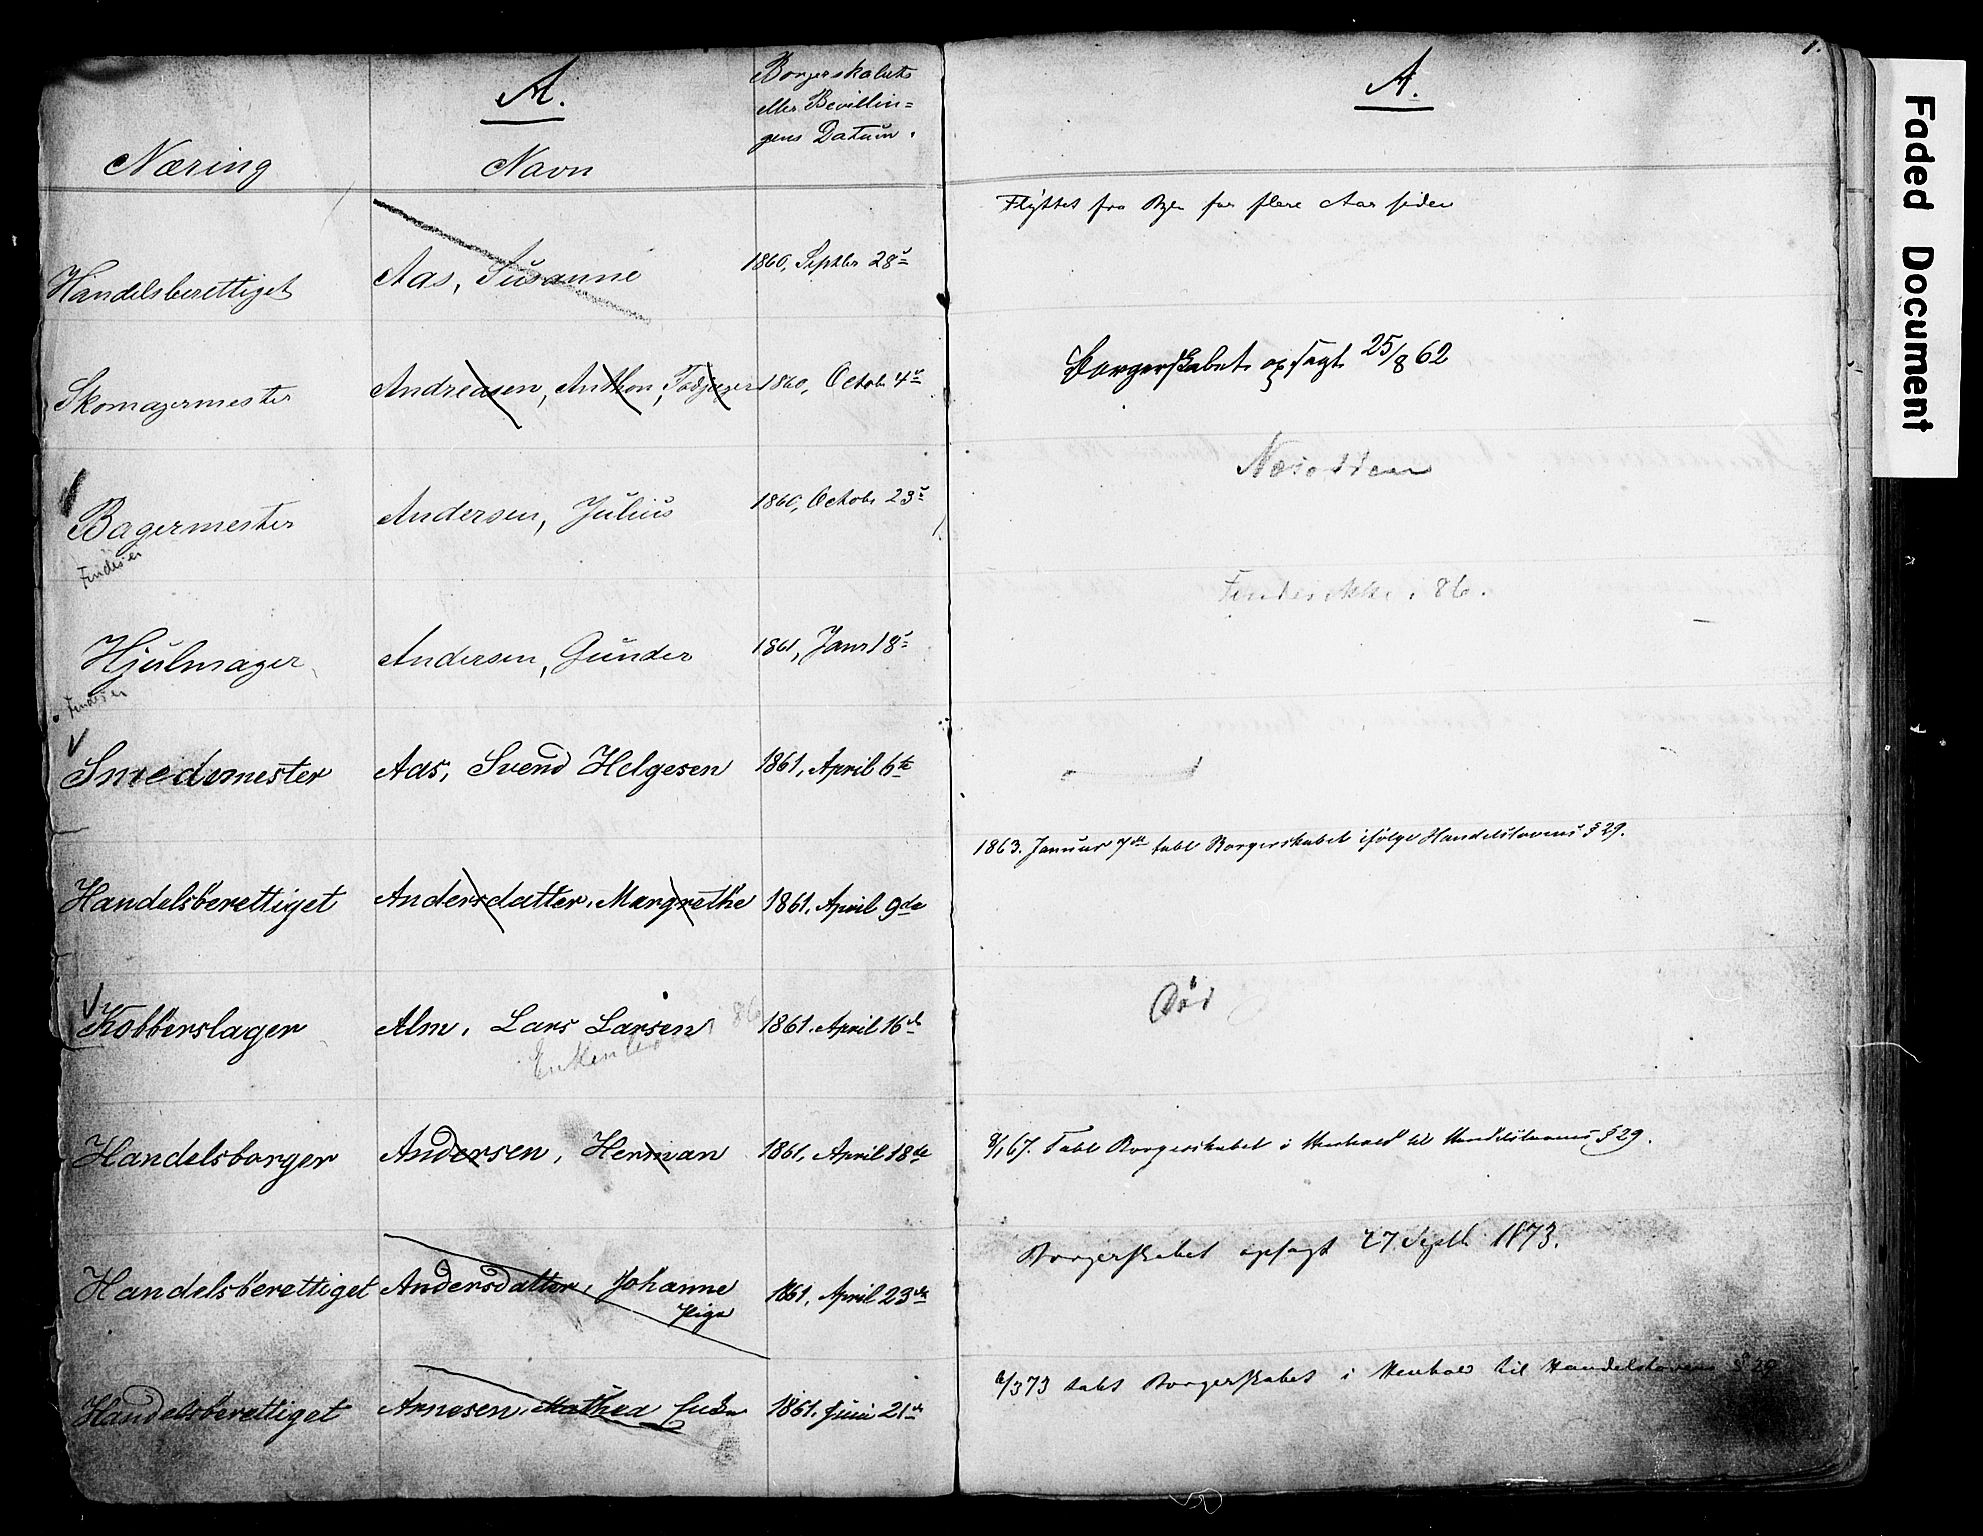 A.
Næring
Navn
Borgerskabets
eller Bevillin=
gens Datum.
Handelsberettiget
Aas, Susanne
1860, Septbr 28
Skomagermester
Andreasen, Anthon,
1860, Octob. 4
Bagermester
Andersen, Julius
1860, Octob. 23
Findes ei
Hjulmager
Andersen, Gunder
1861, Janr 18
Findes ei
Smedemester
Aas, Svend Helgesen
1861, April 6te
Handelsberettiget
Andersdatter, Margrethe
1861, April 9de
Kobberslager
Alm, Lars Larsen
86
1861, April 16de
Enken
Handelsborger
Andersen, Herman
1861, April 18de
Handelsberettiget
Andersdatter, Johanne
Pige
1861, April 23de
Handelsberettiget
Arnesen, Mathea Enke
1861, Juni 21de
1.
A.
Flyttet fra Byen for flere Aar siden
Borgerskabet opsagt 25/8 62
Næsodden
Findes ikke i 86.
1863. Januar 7de tabt Borgerskabet ifølge Handelslovens § 29.
Død
8/1 67. Tabt Borgerskabet i Henhold til Handelslovens § 29.
Borgerskabet opsagt 27 Septb. 1873.
6/3 73 tabt Borgerskabet i Henhold til Handelslovens § 29
Faded Document